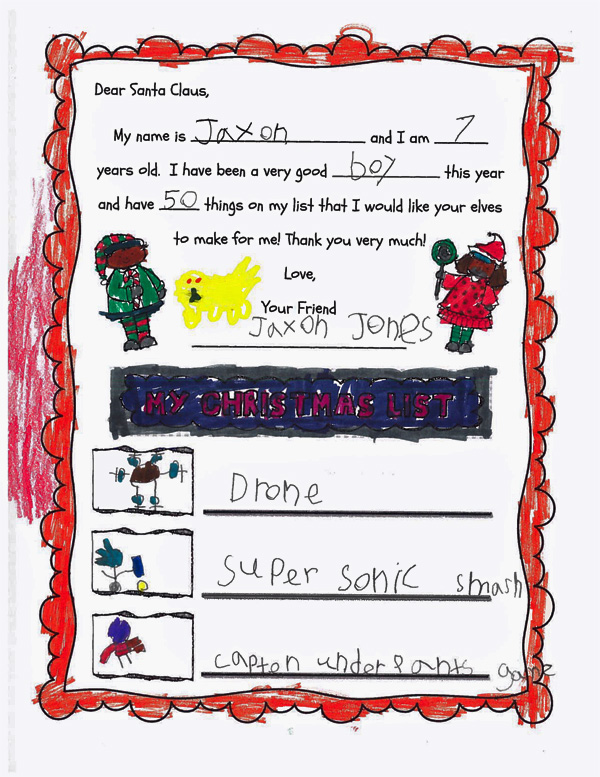 Dear Santa Claus,
My name is Jaxon and I am 7
years old. I have been a very good boy this year
and have 50 things on my list that I would like your elves
to make for me! Thank you very much!
Love,
Your Friend
Jaxon Jones
MY CHRISTMAS LIST
Drone
super sonic smash
capton underpants game